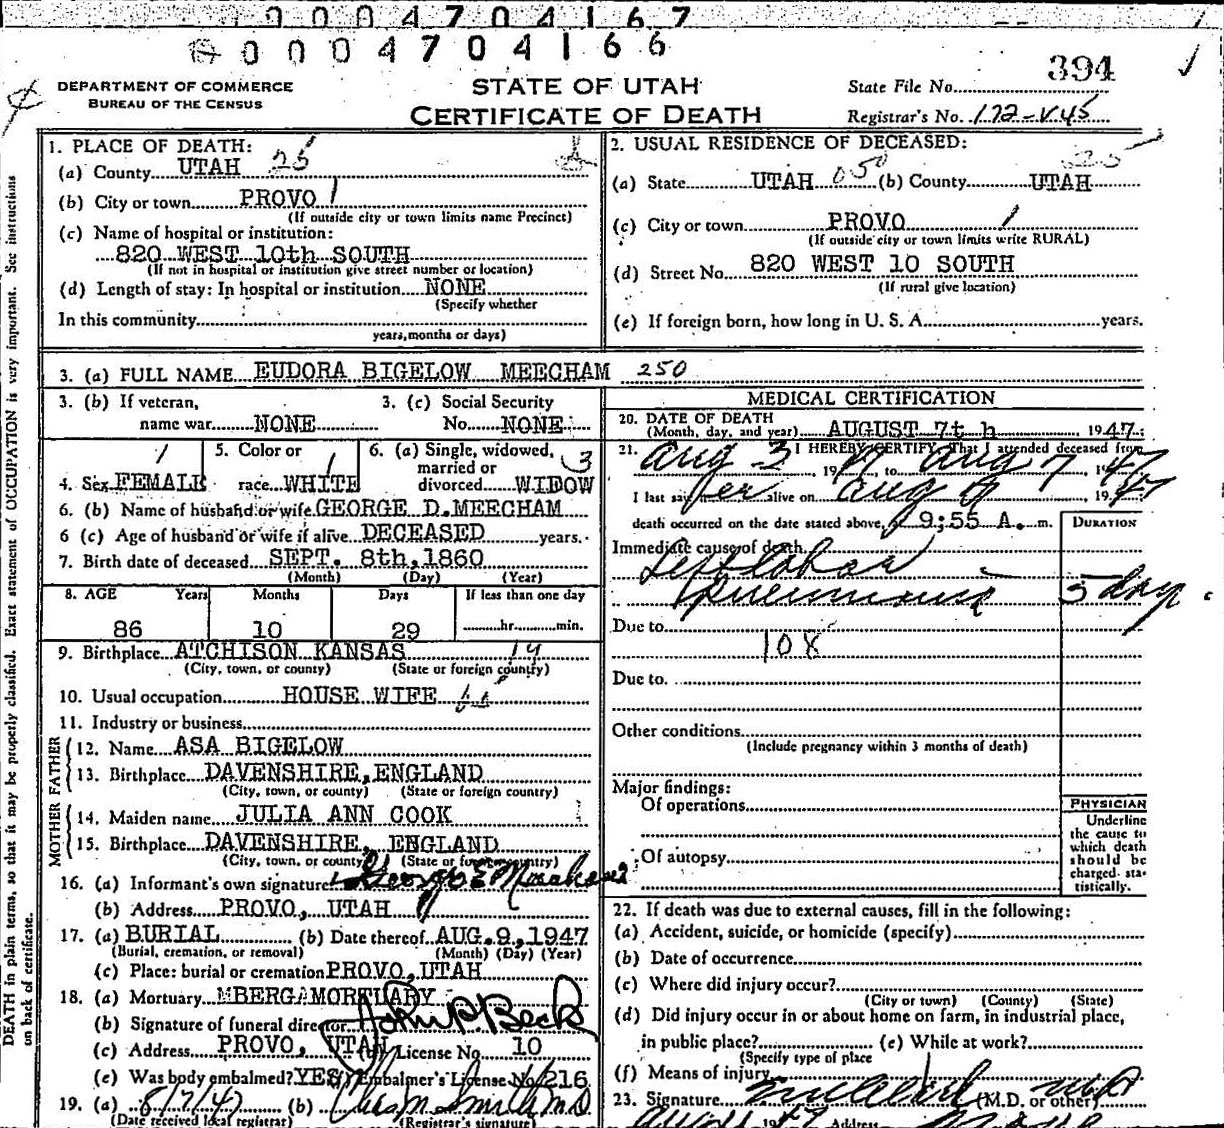 0 0 0 4 7 0 4 1 6 7
0 0 0 4 7 0 4 1 6 6
394
DEPARTMENT OF COMMERCE
BUREAU OF THE CENSUS
STATE OF UTAH
CERTIFICATE OF DEATH
State File No.
Registrar's No. 172-V45
1. PLACE OF DEATH:
(a) County UTAH 25
(b) City or town PROVO 1
(If outside city or town limits name Precinct)
(c) Name of hospital or institution:
820 WEST 10th SOUTH
(If not in hospital or institution give street number or location)
(d) Length of stay: In hospital or institution NONE
(Specify whether
In this community
years, months or days)
2. USUAL RESIDENCE OF DECEASED:
(a) State UTAH 050 (b) County UTAH
(c) City or town PROVO 1
(If outside city or town limits write RURAL)
(d) Street No. 820 WEST 10 SOUTH
(If rural give location)
(e) If foreign born, how long in U. S. A. years.
3. (a) FULL NAME EUDORA BIGELOW MEECHAM 250
3. (b) If veteran, 3. (c) Social Security
name war NONE No. NONE
5. Color or 6. (a) Single, widowed, 3
married or
4. Sex FEMALE race WHITE divorced WIDOW
6. (b) Name of husband or wife GEORGE D. MEECHAM
6 (c) Age of husband or wife if alive DECEASED years.
7. Birth date of deceased SEPT. 8th, 1860
(Month) (Day) (Year)
8. AGE Years Months Days If less than one day
86 10 29 hr. min.
9. Birthplace ATCHISON KANSAS 14
(City, town, or county) (State or foreign country)
10. Usual occupation HOUSE WIFE
11. Industry or business
FATHER
12. Name ASA BIGELOW
13. Birthplace DAVENSHIRE, ENGLAND
(City, town, or county) (State or foreign country)
MOTHER
14. Maiden name JULIA ANN COOK
15. Birthplace DAVENSHIRE, ENGLAND
(City, town, or county) (State or foreign country)
16. (a) Informant's own signature George E
(b) Address PROVO, UTAH
17. (a) BURIAL (b) Date thereof AUG. 9, 1947
(Burial, cremation, or removal) (Month) (Day) (Year)
(c) Place: burial or cremation PROVO, UTAH
18. (a) Mortuary MBERGAMORTUARY
(b) Signature of funeral director John P Beck
(c) Address PROVO, UTAH (d) License No. 10
(e) Was body embalmed? YES (f) Embalmer's License No. 216
19. (a) 8/7/47 (b) Chas M Smith M D
(Date received local registrar) (Registrar's signature)
MEDICAL CERTIFICATION
20. DATE OF DEATH
(Month, day, and year) AUGUST 7th 1947
21. I HEREBY CERTIFY, That I attended deceased from
Aug 3 1947, to Aug 7 1947
I last saw her alive on Aug 1947
death occurred on the date stated above, 9:55 A. m.
DURATION
Immediate cause of death
Left Lobar
Pneumonia 5 day
Due to
108
Due to
Other conditions
(Include pregnancy within 3 months of death)
Major findings:
Of operations
Of autopsy
PHYSICIAN
Underline
the cause to
which death
should be
charged sta-
tistically.
22. If death was due to external causes, fill in the following:
(a) Accident, suicide, or homicide (specify)
(b) Date of occurrence
(c) Where did injury occur?
(City or town) (County) (State)
(d) Did injury occur in or about home on farm, in industrial place,
in public place? (e) While at work?
(Specify type of place
(f) Means of injury
23. Signature (M.D. or other)
Address
DEATH in plain terms, so that it may be properly classified. Exact statement of OCCUPATION is very important. See instructions
on back of certificate.